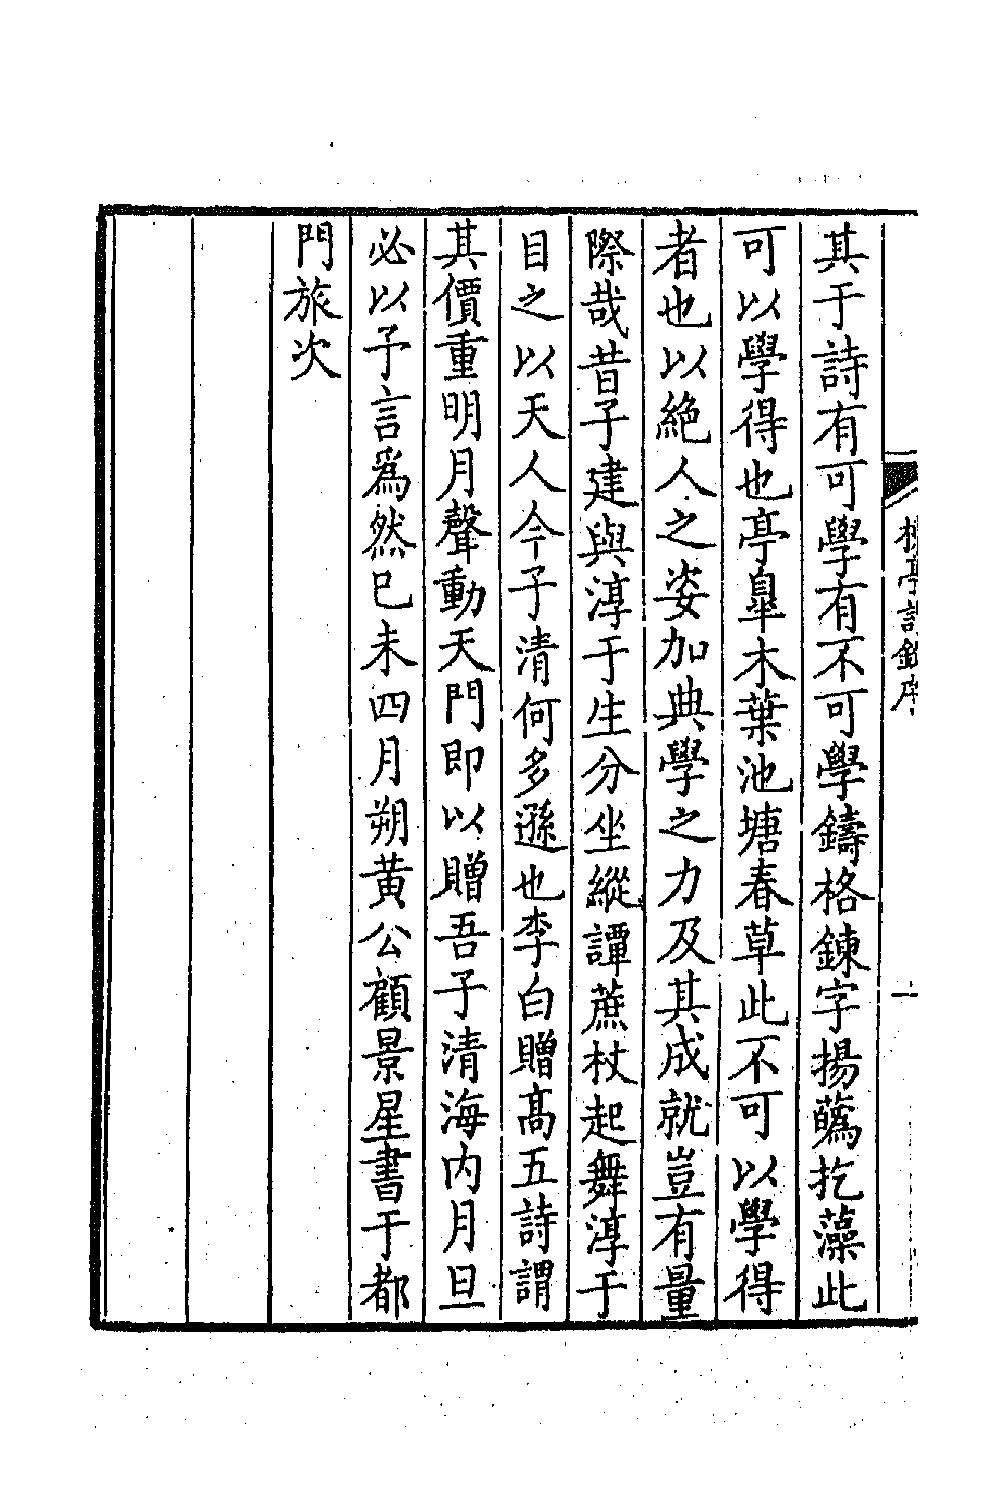 其于詩有可學有不可學鑄格鍊字揚鷮扢藻此
可以學得也亭皐木葉池塘春草此不可以學得
者也以絶人之姿加典學之力及其成就豈有量
際哉昔子建與淳于生分坐縱譚蔗杖起舞淳于
目之以天人今子清何多遜也李白贈高五詩謂
其價重明月聲動天門即以贈吾子清海内月旦
必以予言爲然已未四月朔黄公顧景星書于都
門旅次
亭詩鈔序
一